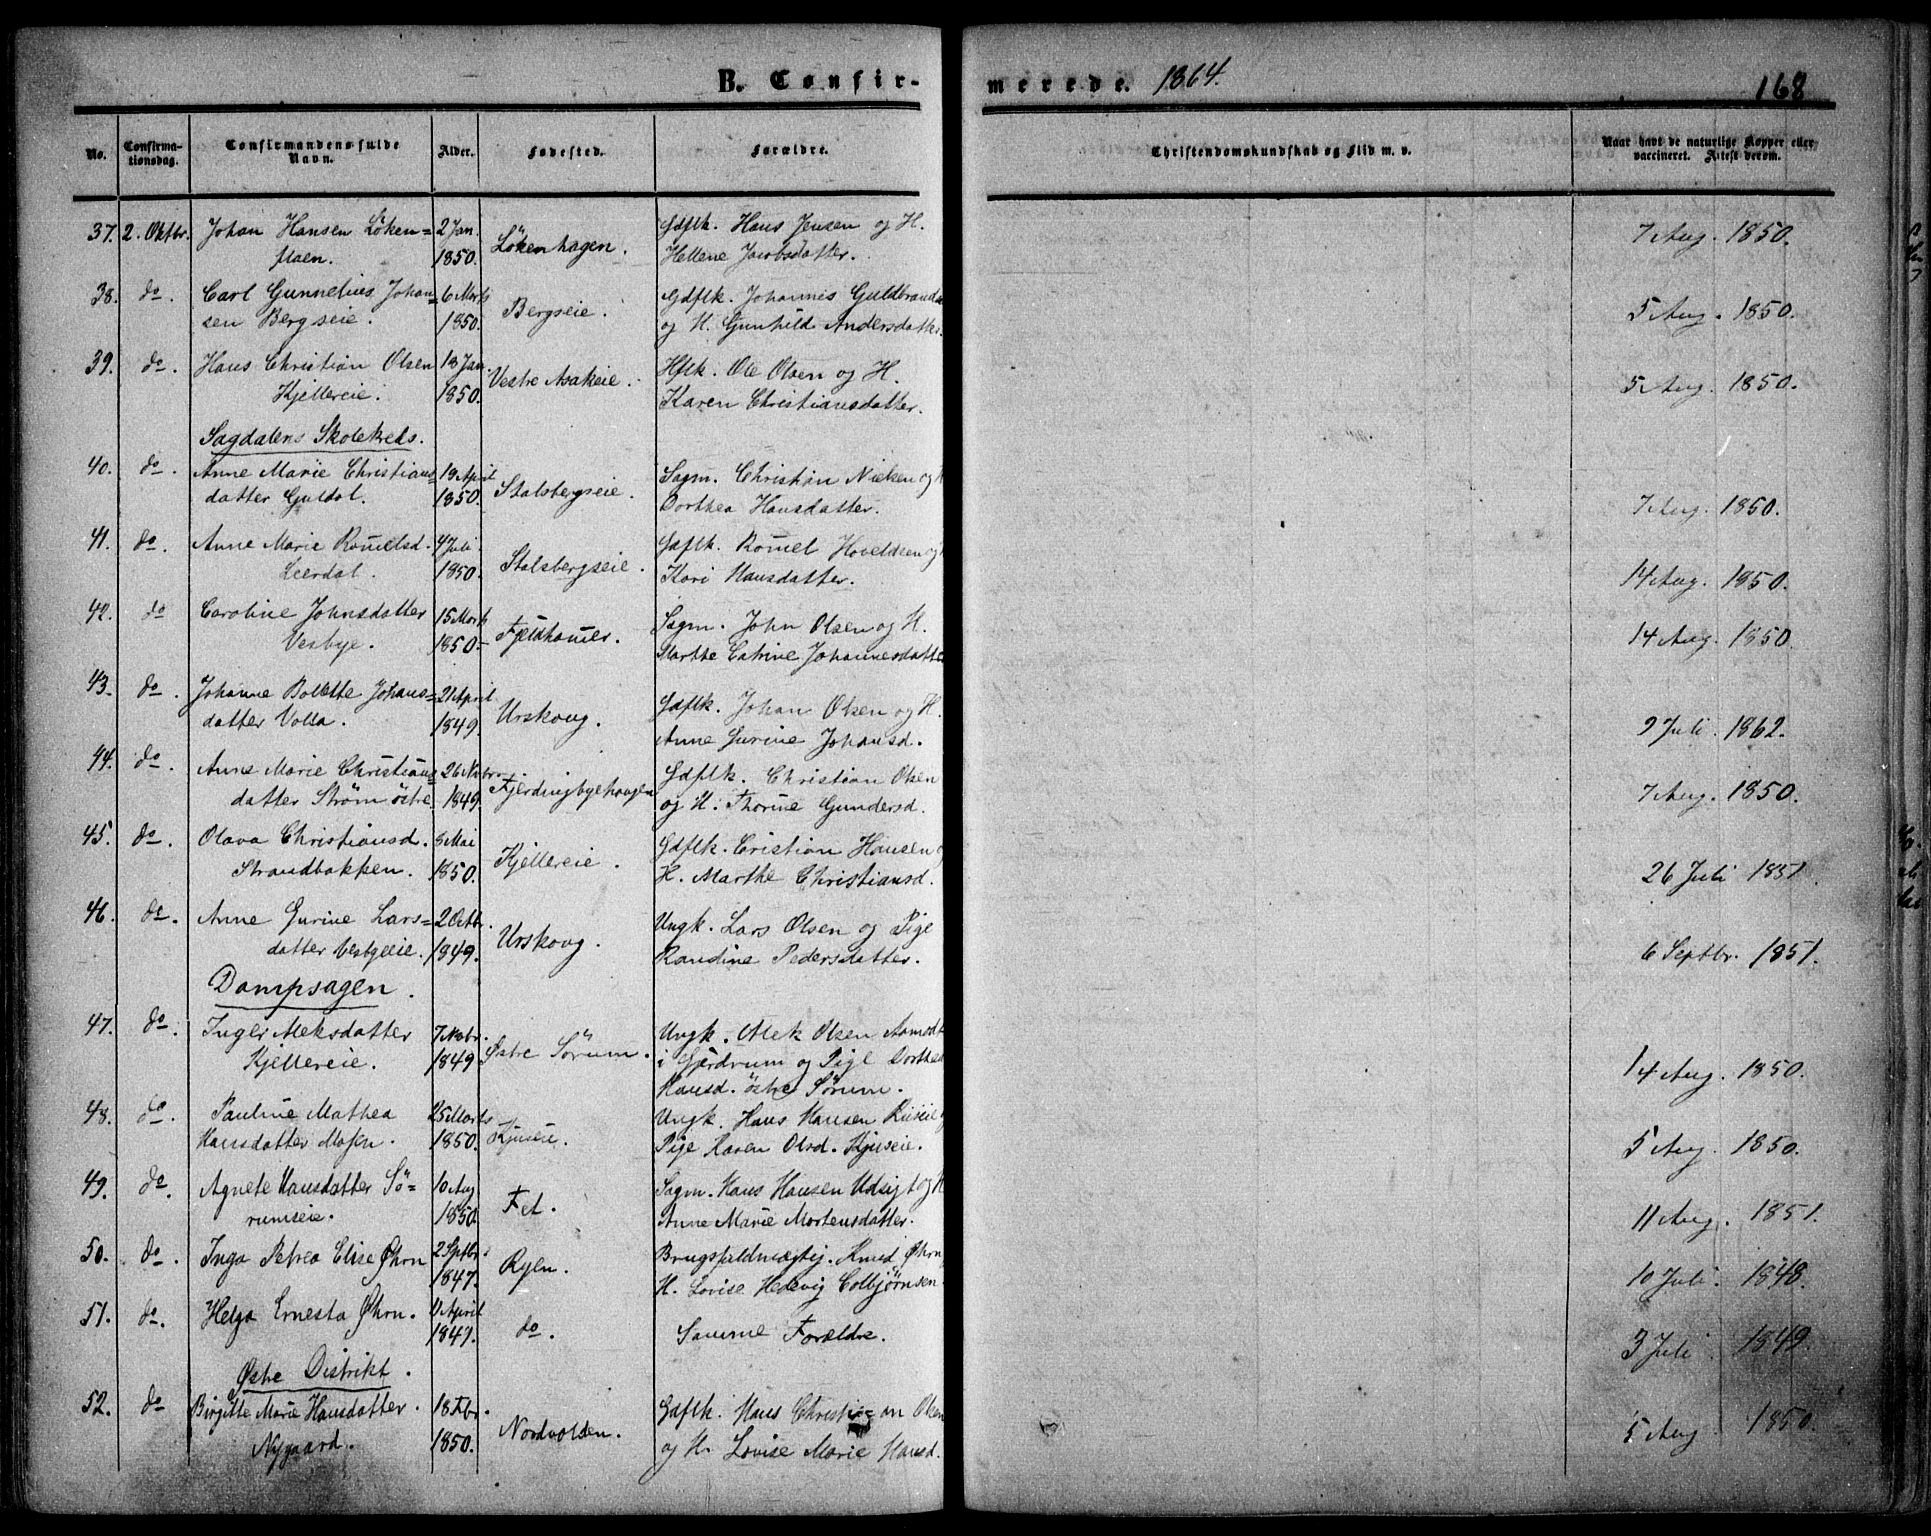 B. Confir-
merede. 1864.
168
No.
Confirma-
tionsdag.
Confirmandens fulde
Navn.
Alder.
Fødested.
Forældre.
Christendomskundskab og Flid m. v.
Naar havt de naturlige Kopper eller
vaccineret. Attest derom.
37. 2. Oktbr. Johan Hansen Löken= 2 Jan. Lökenhagen. Gdflk. Hans Jensen og H. 7 Aug. 1850.
1850. Hellene Jacobsdatter.
38. do. Carl Gunnelius Johan= 6 Marts Bergseie. Gdflk. Johannis Guldbrands 5 Aug. 1850.
sen Bergseie. 1850. og H. Gunhild Andersdatter.
39. do. Hans Christian Olsen 18 Jan. Vestre Asakeie. Hflk. Ole Olsen og H. 5 Aug. 1850.
Kjellereie. 1850. Karen Christiansdatter.
Sagdalens Skolekreds.
40. do. Anne Marie Christians= 19 April Stalsbergseie. Sagm. Christian Nielsen og H 7 Aug. 1850.
datter Guldal. 1850. Dorthea Hansdatter.
41. do. Anne Marie Romelsd. 4 Juli Stalsbergseie. Gdflk. Romel Hoveldsen og 14 Aug. 1850.
Leerdal. 1850. Kari Hansdatter.
42. do Caroline Johnsdatter 15 Marts Fjeldhamer. Sagm. John Olsen og H. 14 Aug. 1850.
Vesbye. 1850. Marthe Catrine Johannesdatter
43. do. Johanne Bolette Johans= 21 April Urskoug. Gdflk. Johan Olsen og H. 9 Juli. 1862.
datter Volla. 1849. Anne Gurine Johansd.
44. do. Anne Marie Christians= 26 Novbr. Fjerdingbyehaugen Gdflk. Christian Olsen 7 Aug. 1850.
datter Strøm östre. 1849. og H. Thorine Gundersd.
45. do. Olava Christiansd. 8 Mai Kjellereie. Gdflk. Cristian Hansen og 26 Juli 1851.
Strandbakken. 1850. H. Marthe Christiansd.
46. do. Anne Gurine Lars= 2 Octbr. Urskoug. Ungk. Lars Olsen og Pige 6 Septbr. 1851.
datter Vestbyeie. 1849. Randine Pedersdatter.
Dampsagen.
47. do. Inger Aleksdatter 7 Novbr. Østre Sörum. Ungk. Alek Olsen Aamodt 14 Aug. 1850.
Kjellereie. 1849 i Gjerdrum og Pige Dorthea
Hansd. östre Sörum.
48. do. Pauline Mathea 25 Marts Kjuseie. Ungk. Hans Hansen og 5 Aug. 1850.
Hansdatter Mosen. 1850. Pige Karen Olsd. Kjuseie.
49. do. Agnete Hansdatter Sö= 10 Aug Fet. Sagm. Hans Hansen Udsigt og H 11 Aug. 1851.
rumseie. 1850. Anne Marie Mortensdatter.
50. do. Inga Petrea Elise Øhrn 2 Septbr. Ryen. Brugsfuldmægtig. Knud Øhrn 10 Juli. 1848.
1847. H. Lovise Hedevig Colbjørnsen.
51. do. Helga Ernesta Øhrn. April do. Samme Forældre. 3 Juli 1849.
1849.
Østre Distrikt.
52. do Birgitte Marie Hansdatter. 18 Fbr. Nordvolden. Gdflk. Hans Christian Olsen 5 Aug 1850.
Nygaard. 1850. og H. Lovise Marie Hansd.